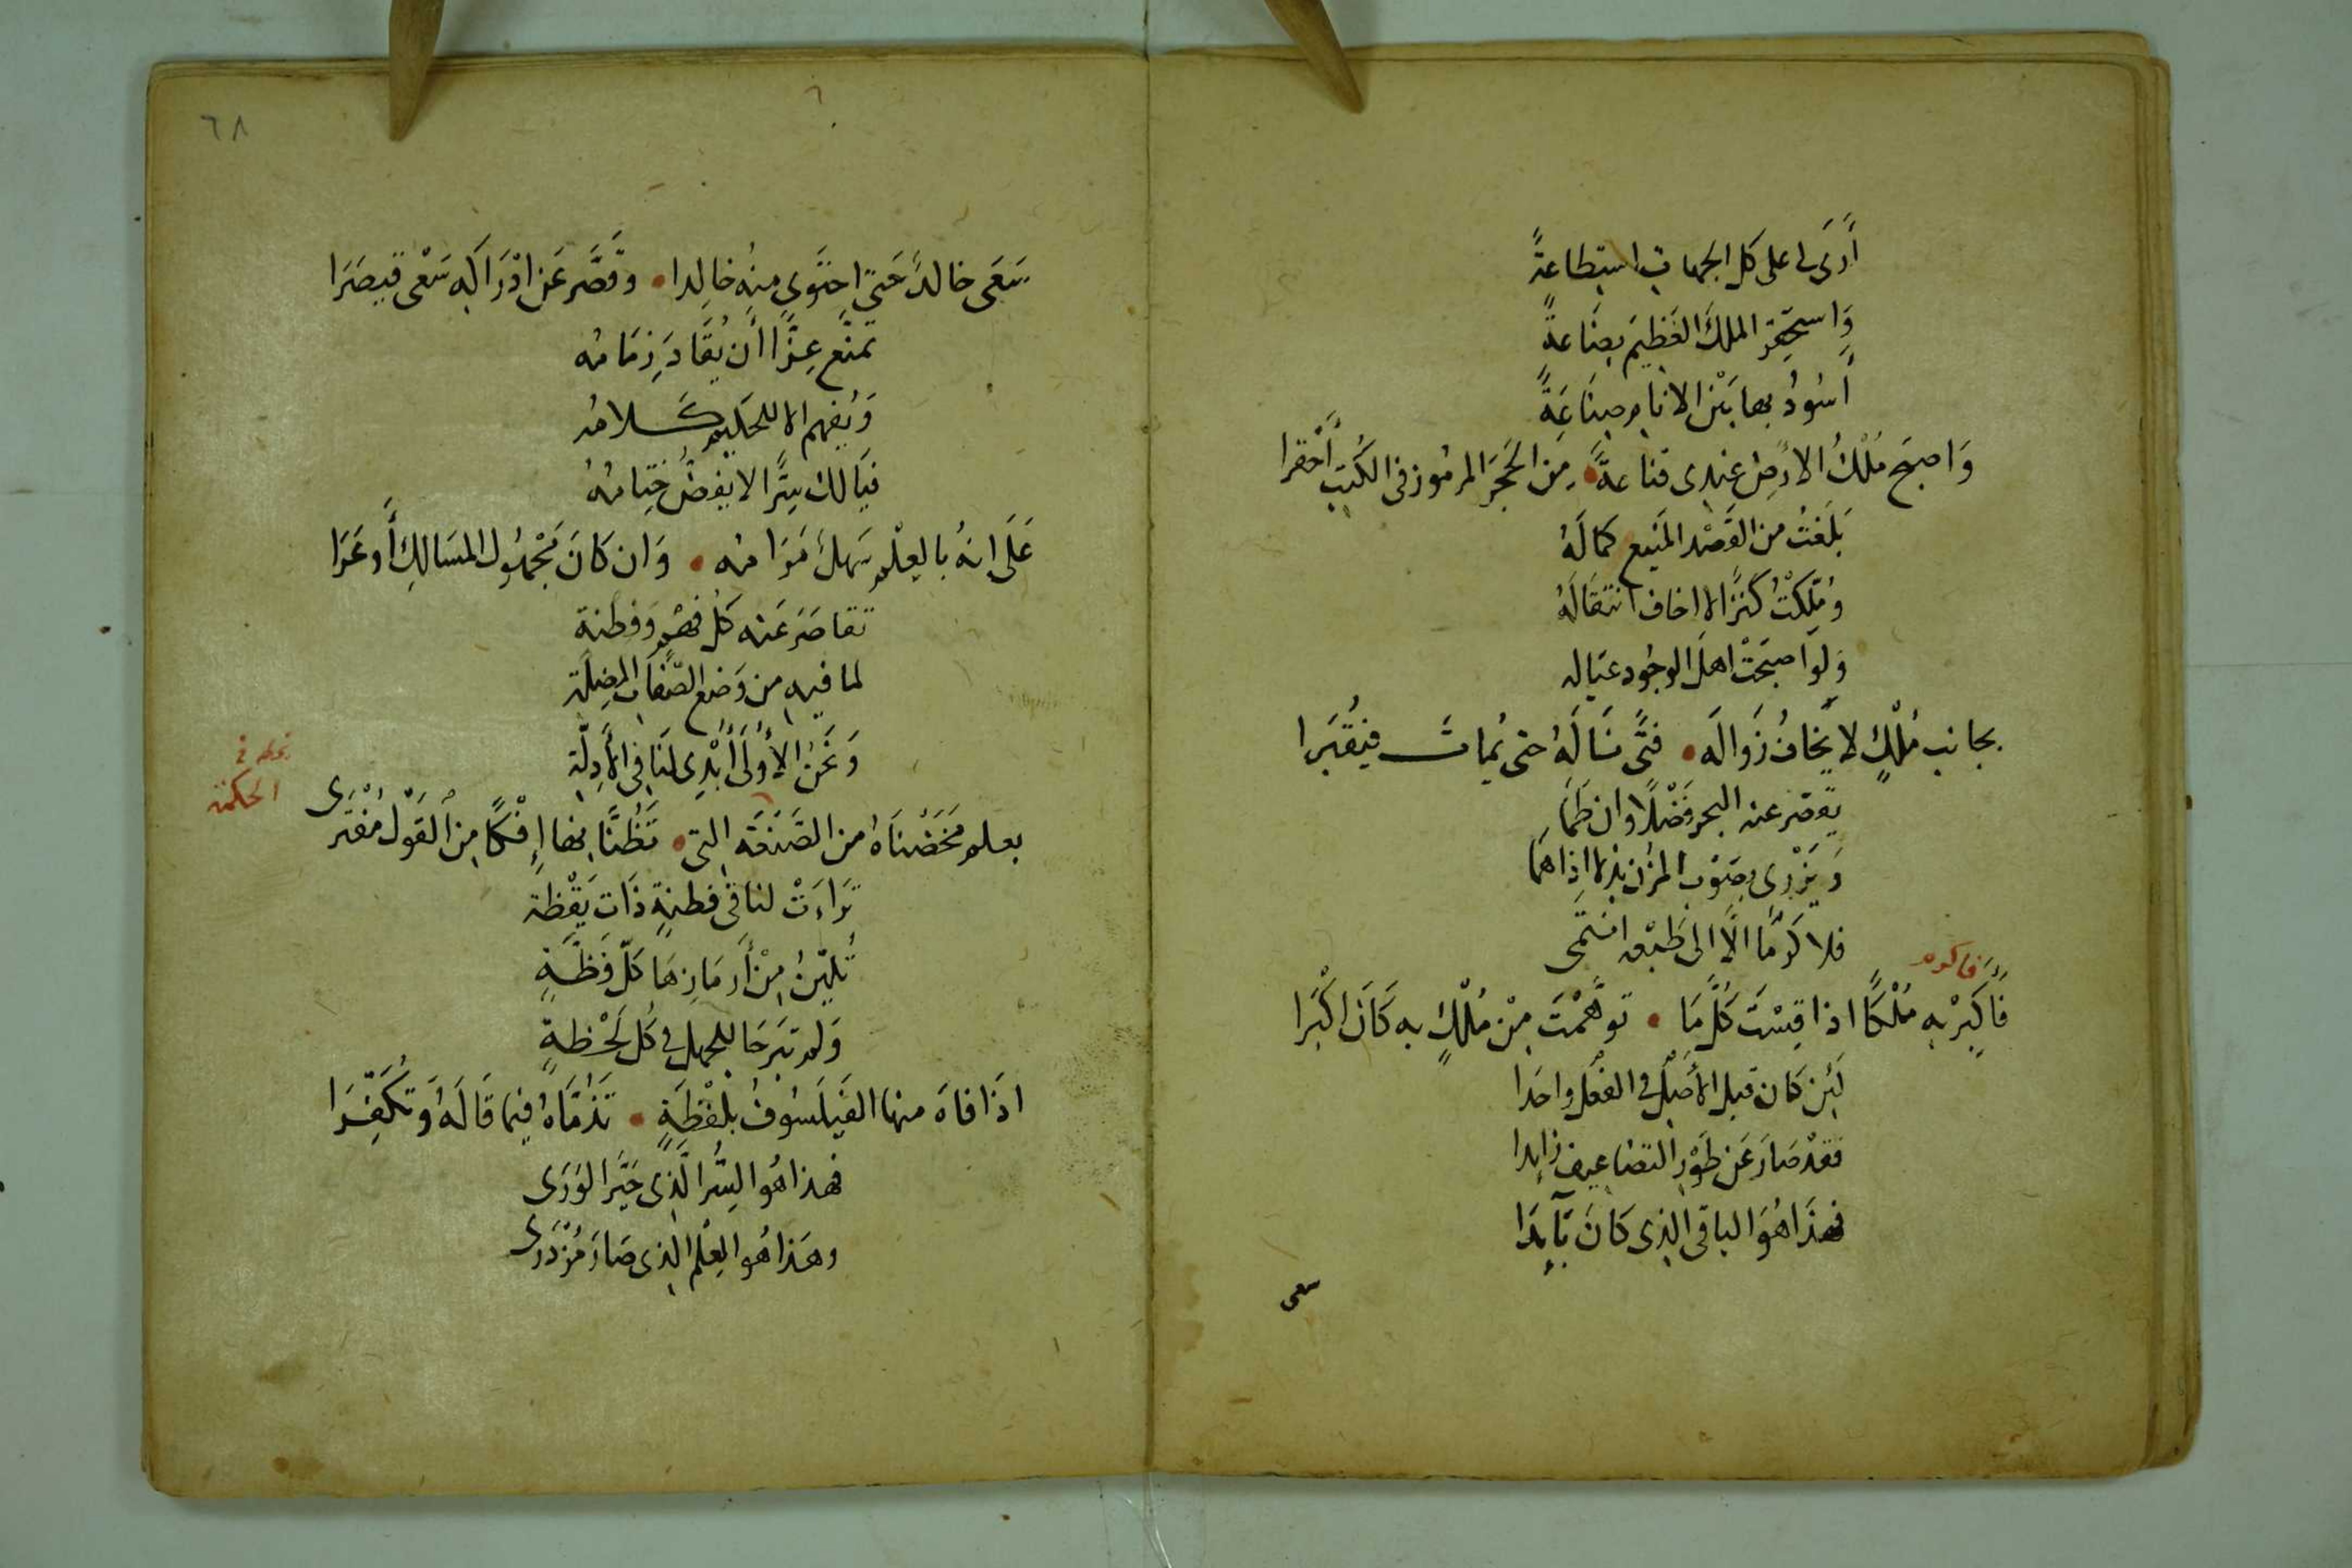 أَرَى لى على كل الجهات استطاعةً
وَاستحقِر الملكَ العَظيمَ بِضَاعةً
أَسُودُ بها بَيْنَ الانام صِنَاعَةً
وَاصبحَ مُلْكُ الارْضِ عندِى قناعةً • مِن الحَجَر المرمُوز فى الكُتبِ أَحْقرا
بَلَغتُ من القَصْد المَنيع كمَالَهُ
وَمُلِّكتُ كنزًا لا اخاف انتقالَهُ
وَلوَاصبَحَتْ اهلُ الوجُود عيَاله
بجانب مُلْكٍ لا يُخافُ زَوالَه • فتًى نَالَهُ حتى يُماتَ فيُقبَرا
يقصّر عنه البحر فَضْلًا وان طَمَا
وَيَزْرِى بِصَوْب المُزْن بذلا اذا هَمَا
فلا كَرَمًا الَّا الى طَبْعه انتَمى
فاكرم
فَأكْبِرْ بِهِ مُلْكًا اذا قِسْتَ كُلَّمَا • توهَّمْتَ مِنْ مُلْكٍ به كَانَ اكْبَرا
لَئِن كَان قبلَ الأَصْل فى الفعْل واحدا
فقدْ صَارَ عَن طَوْرِ التضاعيف زايدا
فهذَا هُوَ الباقى الذى كَانَ بَآيدَا
سعى
٦٨
سَعَى خالدٌ حَتى احتَوى منهُ خالِدا • وقَصَّر عَن ادْرَاكِه سَعْى قيصَرَا
تمنّع عِزًّا أَن يُقَادَ زِمَامُه
وَيُفهم الا للحَكيم كَلامُه
فيَالك سِرًّا لا يُفضُّ خِتَامُهُ
عَلَى انهُ بالعِلْم سَهلٌ مَرَامُه • وَان كَانَ مَجْهُول المسَالِك أَوعَرَا
تقاصَرَ عَنه كل فهْمٍ وَفطنة
لما فيهِ من وَضع الصّفَات المضِلّة
وَنَحْنُ الأُولَى أُبْدِى لنَا فى الأَدِلّة
نحله فى
الحكمة
بعلم مَخَضْنَاهُ من الصَّنعَه التى • تَظُنَّا بها إِفْكًا مِنَ القَوْل مُفْتَرى
تَراءَتْ لنا فى فطنةٍ ذَات يَقْظة
تُليّنُ مِنْ أَرمَازهَا كلّ فَظّةٍ
وَلم تبرَحَا للجهل فى كُل لَحْظةٍ
اذَا فاهَ منها الفَيلَسُوفُ بلَفْظَةٍ • تَذُمَّاهُ فيما قَالَهُ وَتُكَفِّرَا
فهذا هُو السِّرُ الَّذِى حَيَّرَ الوَرَى
وهَذا هُو العِلْم الذى صَارَ مُزْدَرى